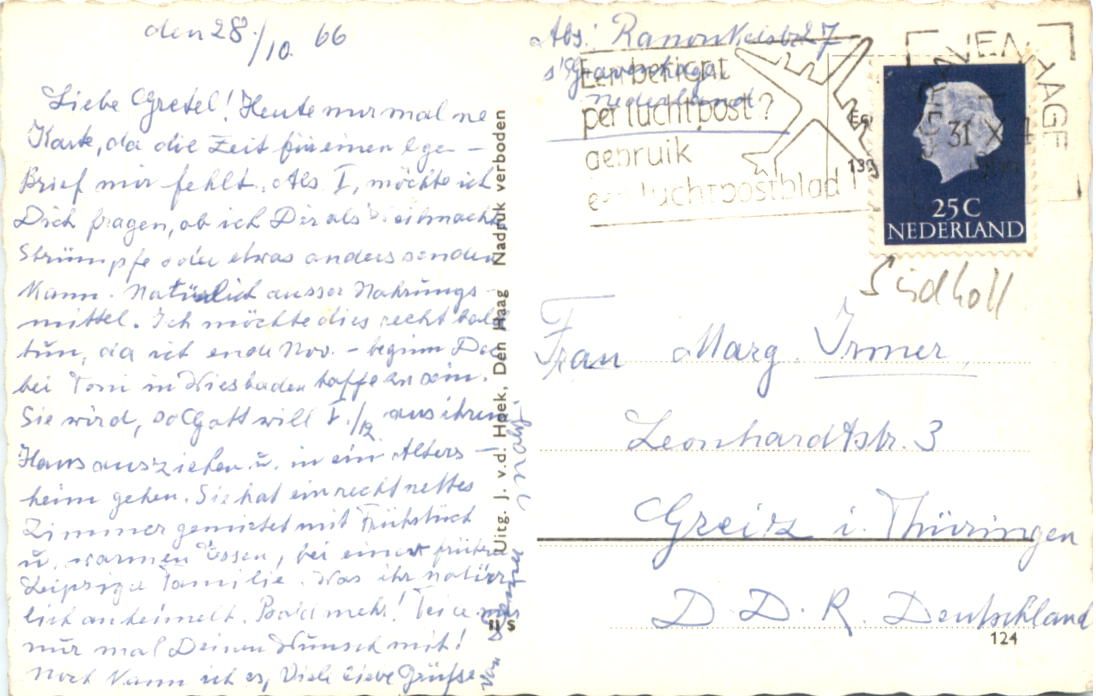 den 28./10. 66
Liebe Gretel! Heute nur mal ne
Karte, da die Zeit für einen lgen-
Brief mir fehlt. Als I, möchte ich
Dich fragen, ob ich Dir als Weihnachts
Strümpfe oder etwas anders senden
kann. Natürlich ausser Nahrungs-
mittel. Ich möchte dies recht bald
tun, da ich ende Nov. - beginn Dec
bei Toni in Wiesbaden hoffe zu sein.
Sie wird, so Gott will 1./12 aus ihrem
Haus ausziehen u. in ein Alters-
heim gehen. Sie hat ein recht nettes
Zimmer gemietet mit Frühstück
u. warmen Essen, bei einer früheren
Leipziger Familie. Was ihr natür-
lich anheimelt. Bald mehr! Teile
nur mal Deinen Wunsch mit!
Noch kann ich es, Viele liebe Grüße
von
Uitg. J. v.d. Hoek, Den Haag Nadruk verboden
11 S
Abs: 27
s'Gravenhage
Nederland
Een bericht
per luchtpost?
gebruik
een luchtpostblad!
139
'S GRAVENHAGE
31 X
25 C
NEDERLAND
Südholl
Frau Marg. Irmer,
Leonhardtstr. 3
Greiz i. Thüringen
D. D. R. Deutschland
124